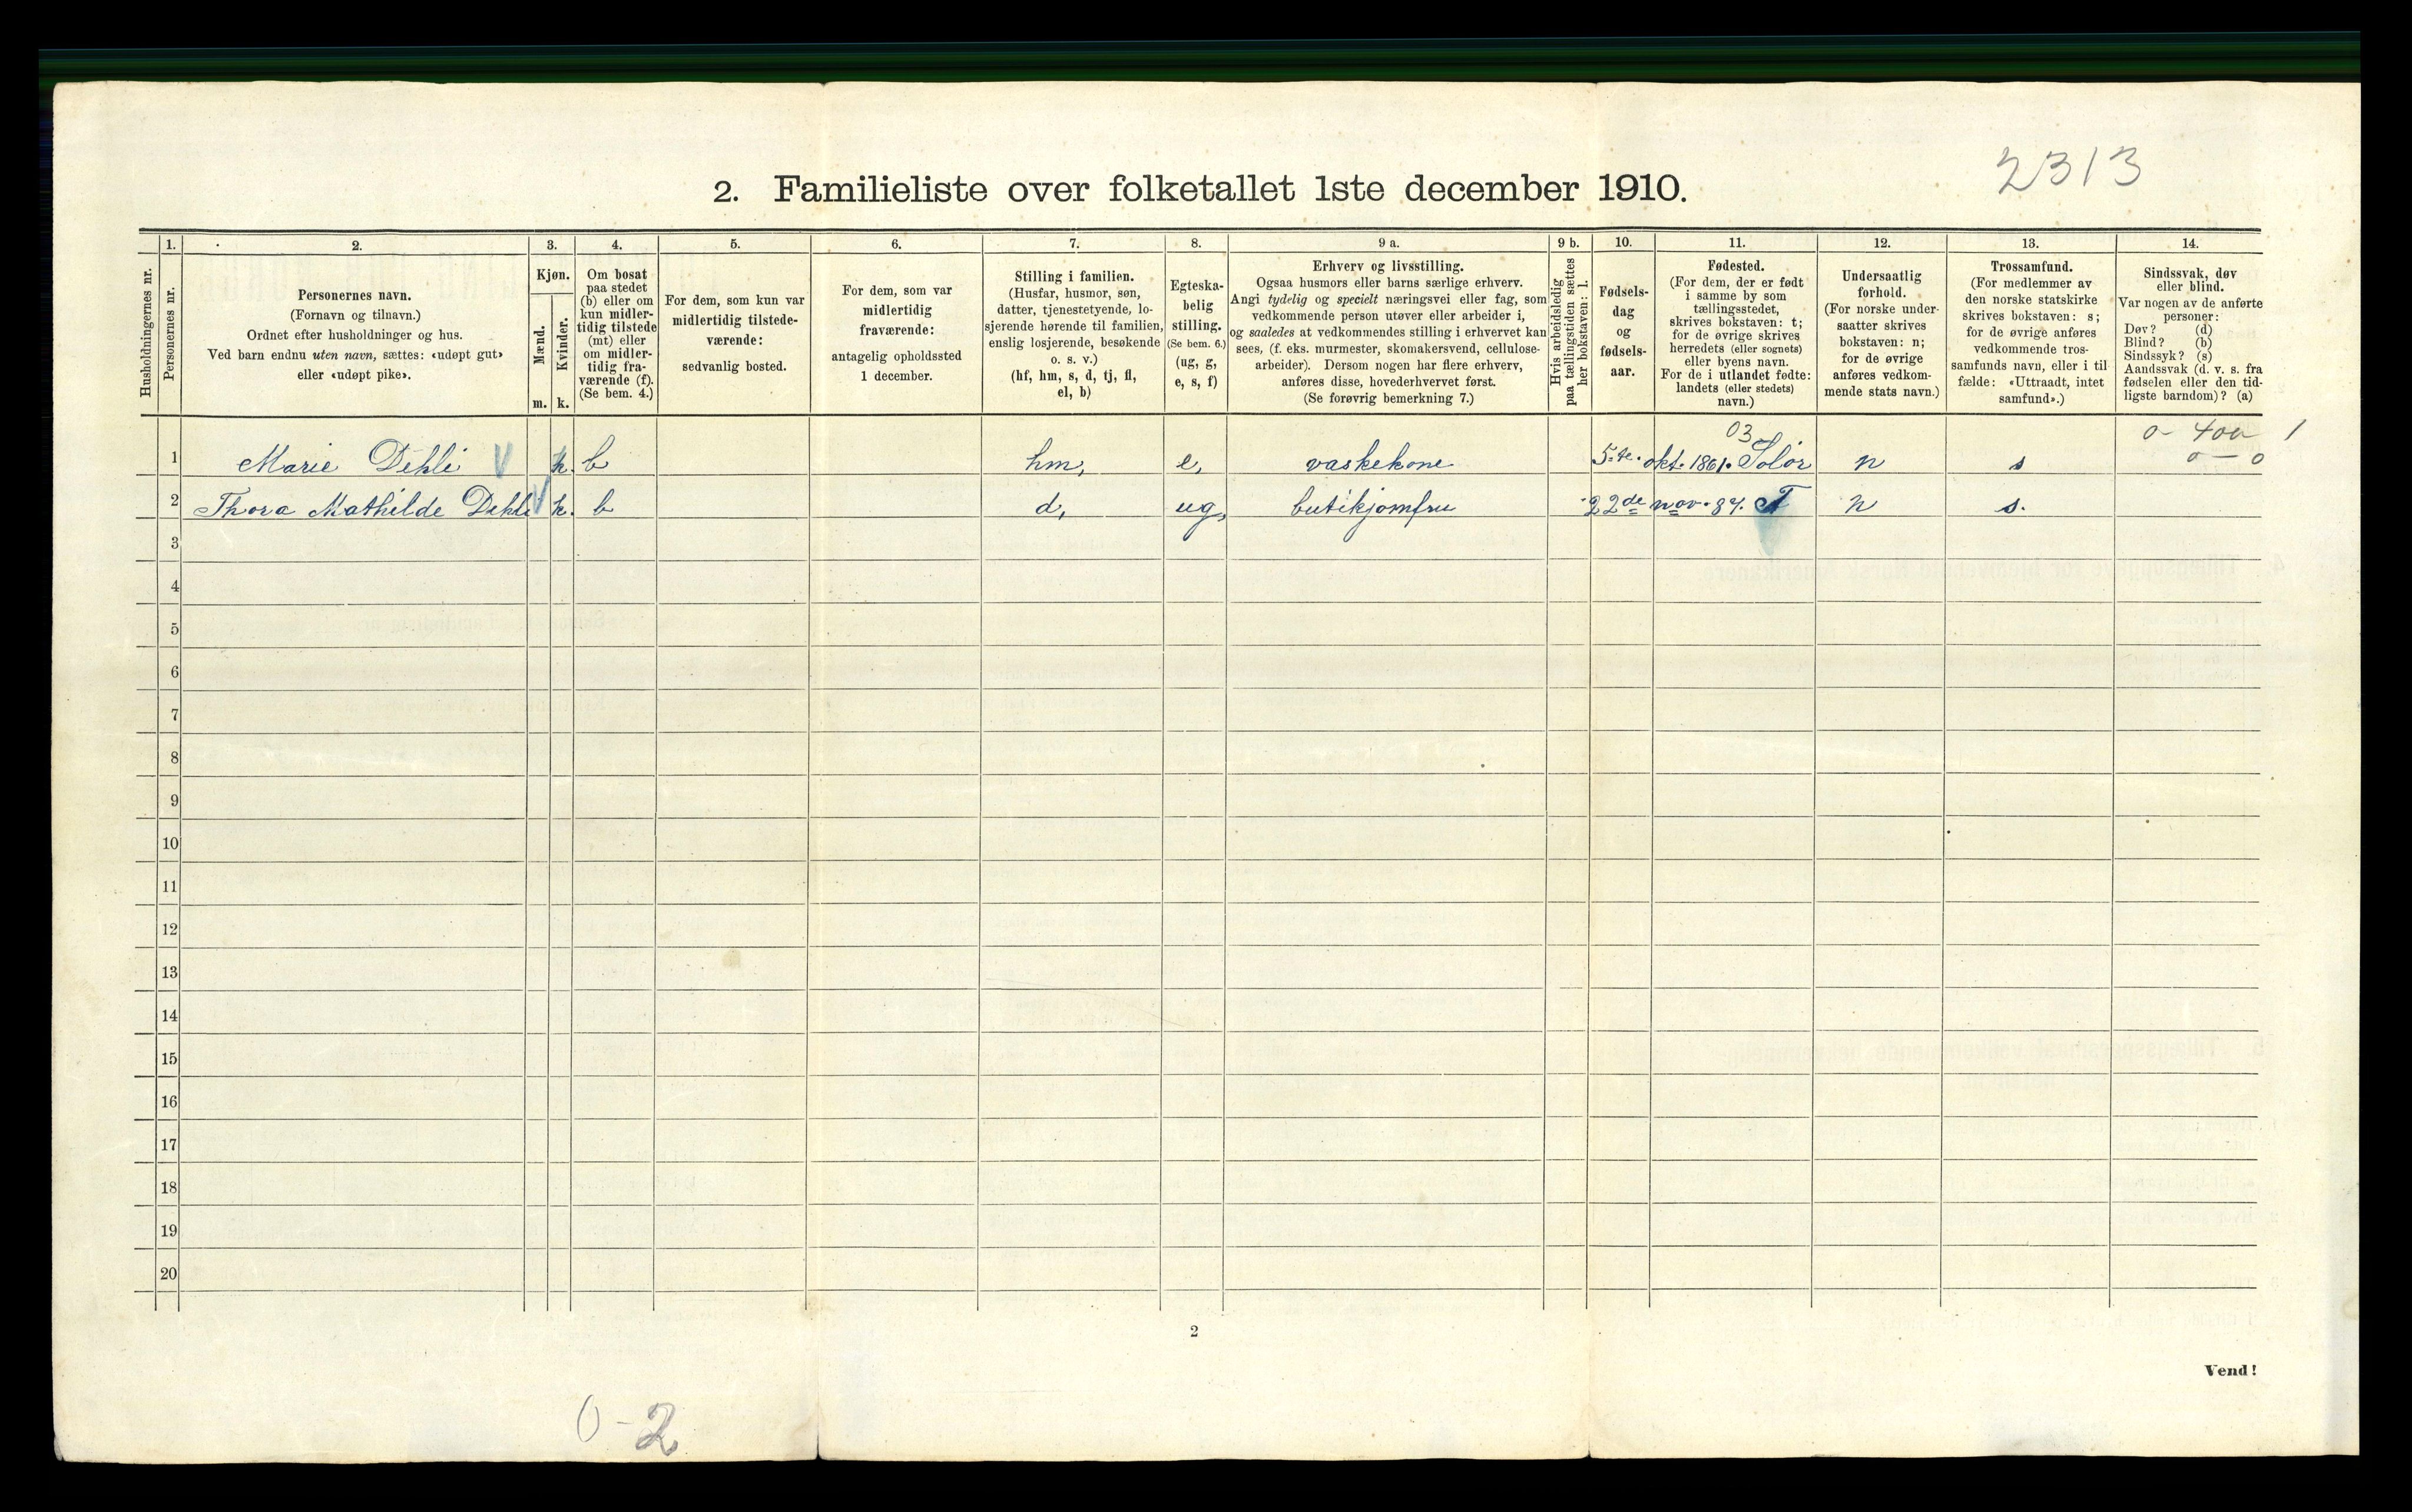 2313
2. Familieliste over folketallet 1ste december 1910.
Husholdningernes nr.
1.
Personernes nr.
2.
Personernes navn.
(Fornavn og tilnavn.)
Ordnet efter husholdninger og hus.
Ved barn endnu uten navn, sættes: «udøpt gut»
eller «udøpt pike».
3.
Kjøn.
Mænd.
Kvinder.
m. k.
4.
Om bosat
paa stedet
(b) eller om
kun midler-
tidig tilstede
(mt) eller
om midler-
tidig fra-
værende (f).
(Se bem. 4.)
5.
For dem, som kun var
midlertidig tilstede-
værende:
sedvanlig bosted.
6.
For dem, som var
midlertidig
fraværende:
antagelig opholdssted
1 december.
7.
Stilling i familien.
(Husfar, husmor, søn,
datter, tjenestetyende, lo-
sjerende hørende til familien,
enslig losjerende, besøkende
o. s. v.)
(hf, hm, s, d, tj, fl,
el, b)
8.
Egteska-
belig
stilling.
(Se bem. 6.)
(ug, g,
e, s, f)
9 a.
Erhverv og livsstilling.
Ogsaa husmors eller barns særlige erhverv.
Angi tydelig og specielt næringsvei eller fag, som
vedkommende person utøver eller arbeider i,
og saaledes at vedkommendes stilling i erhvervet kan
sees, (f. eks. murmester, skomakersvend, cellulose-
arbeider). Dersom nogen har flere erhverv,
anføres disse, hovederhvervet først.
(Se forøvrig bemerkning 7.)
9 b.
Hvis arbeidsledig
paa tællingstiden sættes
her bokstaven: l.
10.
Fødsels-
dag
og
fødsels-
aar.
11.
Fødested.
(For dem, der er født
i samme by som
tællingsstedet,
skrives bokstaven: t;
for de øvrige skrives
herredets (eller sognets)
eller byens navn.
For de i utlandet fødte:
landets (eller stedets)
navn.)
12.
Undersaatlig
forhold.
(For norske under-
saatter skrives
bokstaven: n;
for de øvrige
anføres vedkom-
mende stats navn.)
13.
Trossamfund.
(For medlemmer av
den norske statskirke
skrives bokstaven: s;
for de øvrige anføres
vedkommende tros-
samfunds navn, eller i til
fælde: «Uttraadt, intet
samfund».)
14.
Sindssvak, døv
eller blind.
Var nogen av de anførte
personer:
Døv? (d)
Blind? (b)
Sindssyk? (s)
Aandssvak (d. v. s. fra
fødselen eller den tid-
ligste barndom)? (a)
03 0- 400 1
1 Marie Dehli V k. b hm, e, vaskekone 5-te. okt. 1861. Solør n s 0 — 0
2 Thora Mathilde Dehli V k. b d, ug, butikjomfru 22de nov. 87. T n s.
3
4
5
6
7
8
9
10
11
12
13
14
15
16
17
18
19
20
2
Vend!
0-2